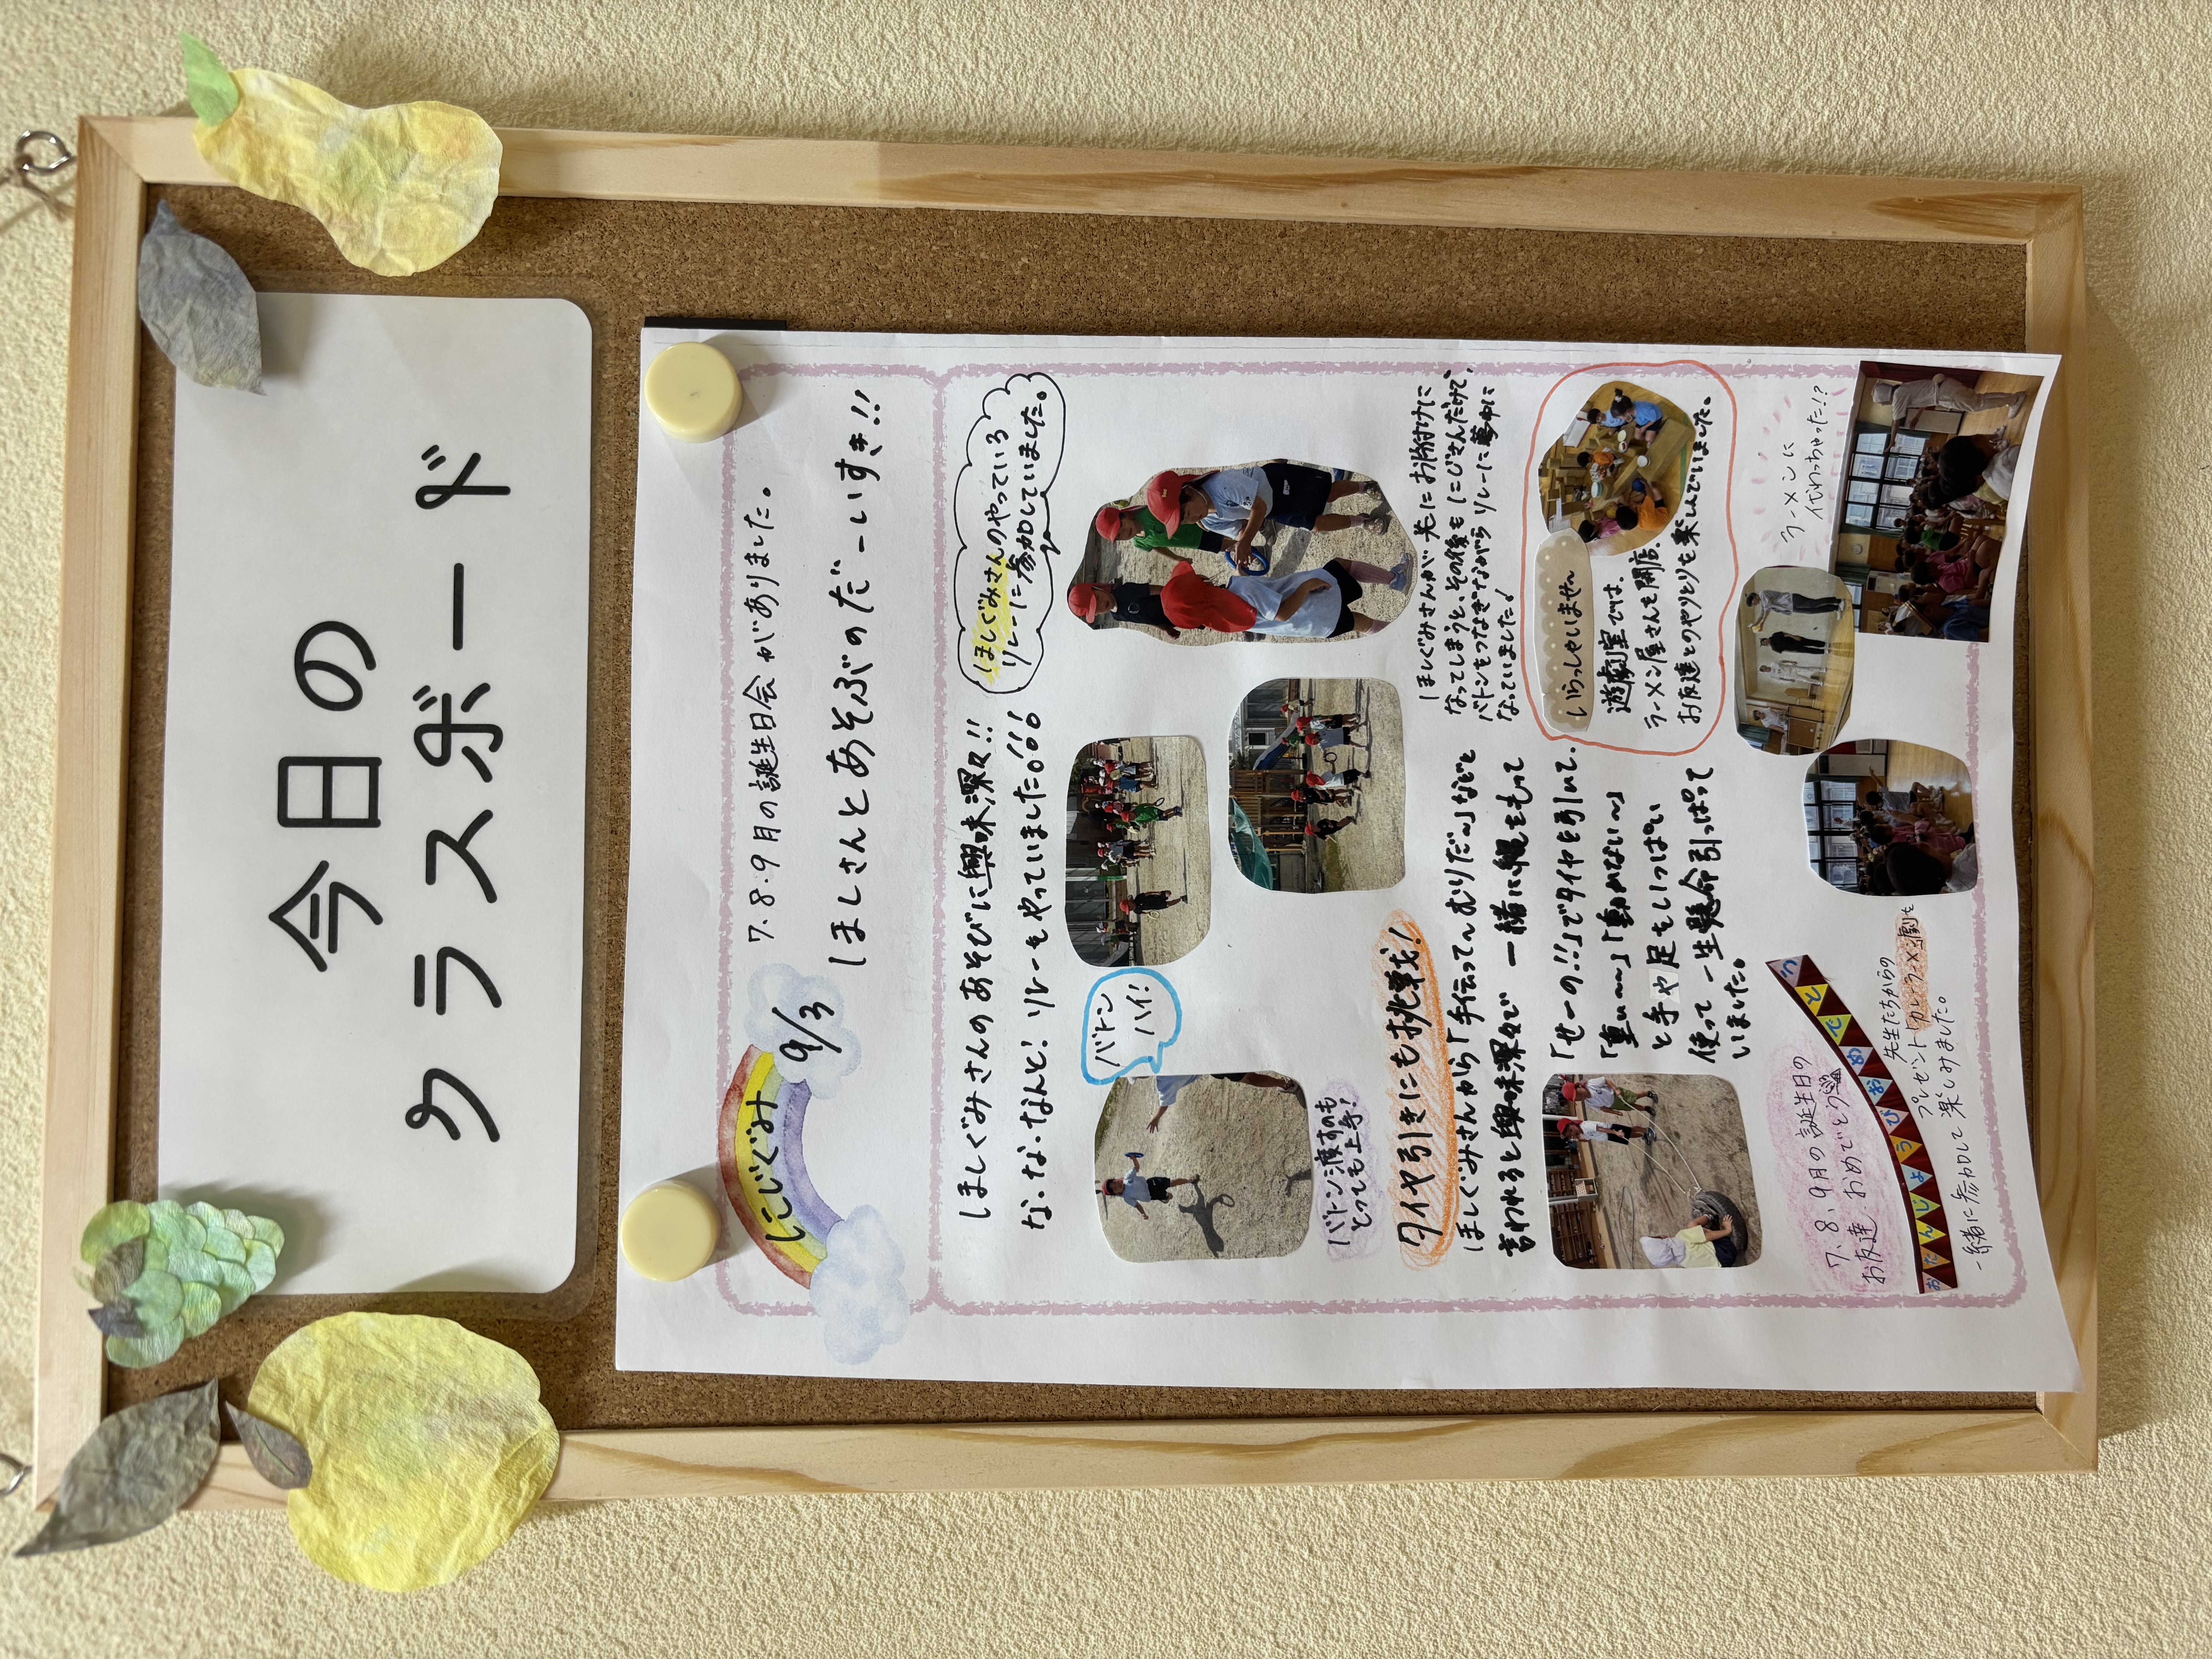 今日の
クラスボード
にじぐみ
9/3
7.8.9月の誕生日会がありました。
ほしさんとあそぶのだーいすき!!
ほしぐみさんのあそびに興味深々!!
な・な・なんと! リレーをやっていました!
ほしぐみさんのやっている
リレーに参加していました。
バトン
ハイ!
バトン渡すのも
とっても上手!
ほしぐみさんが先にお片付けに
なってしまうと、その後もにじさんだけで、
バトンをつなぎながらリレーに夢中に
なっていました!
タイヤ引きにも挑戦!
ほしぐみさんから「手伝って~むりだ~」などと
言われると興味深々で 一緒に縄をもって
「せーの!!」でタイヤを引いて、
「重い~~」「動かない~」
と手や足をいっぱい
使って一生懸命引っぱって
いました。
いらっしゃいませ
遊戯室では、
ラーメン屋さんを開店。
お友達とのやりとりを楽しんでいました。
7、8、9月の誕生日の
お友達 おめでとう
おたんじょうびおめでとう
先生たちからの
一緒に参加して楽しみました。
ラーメンに
代わっちゃった!?